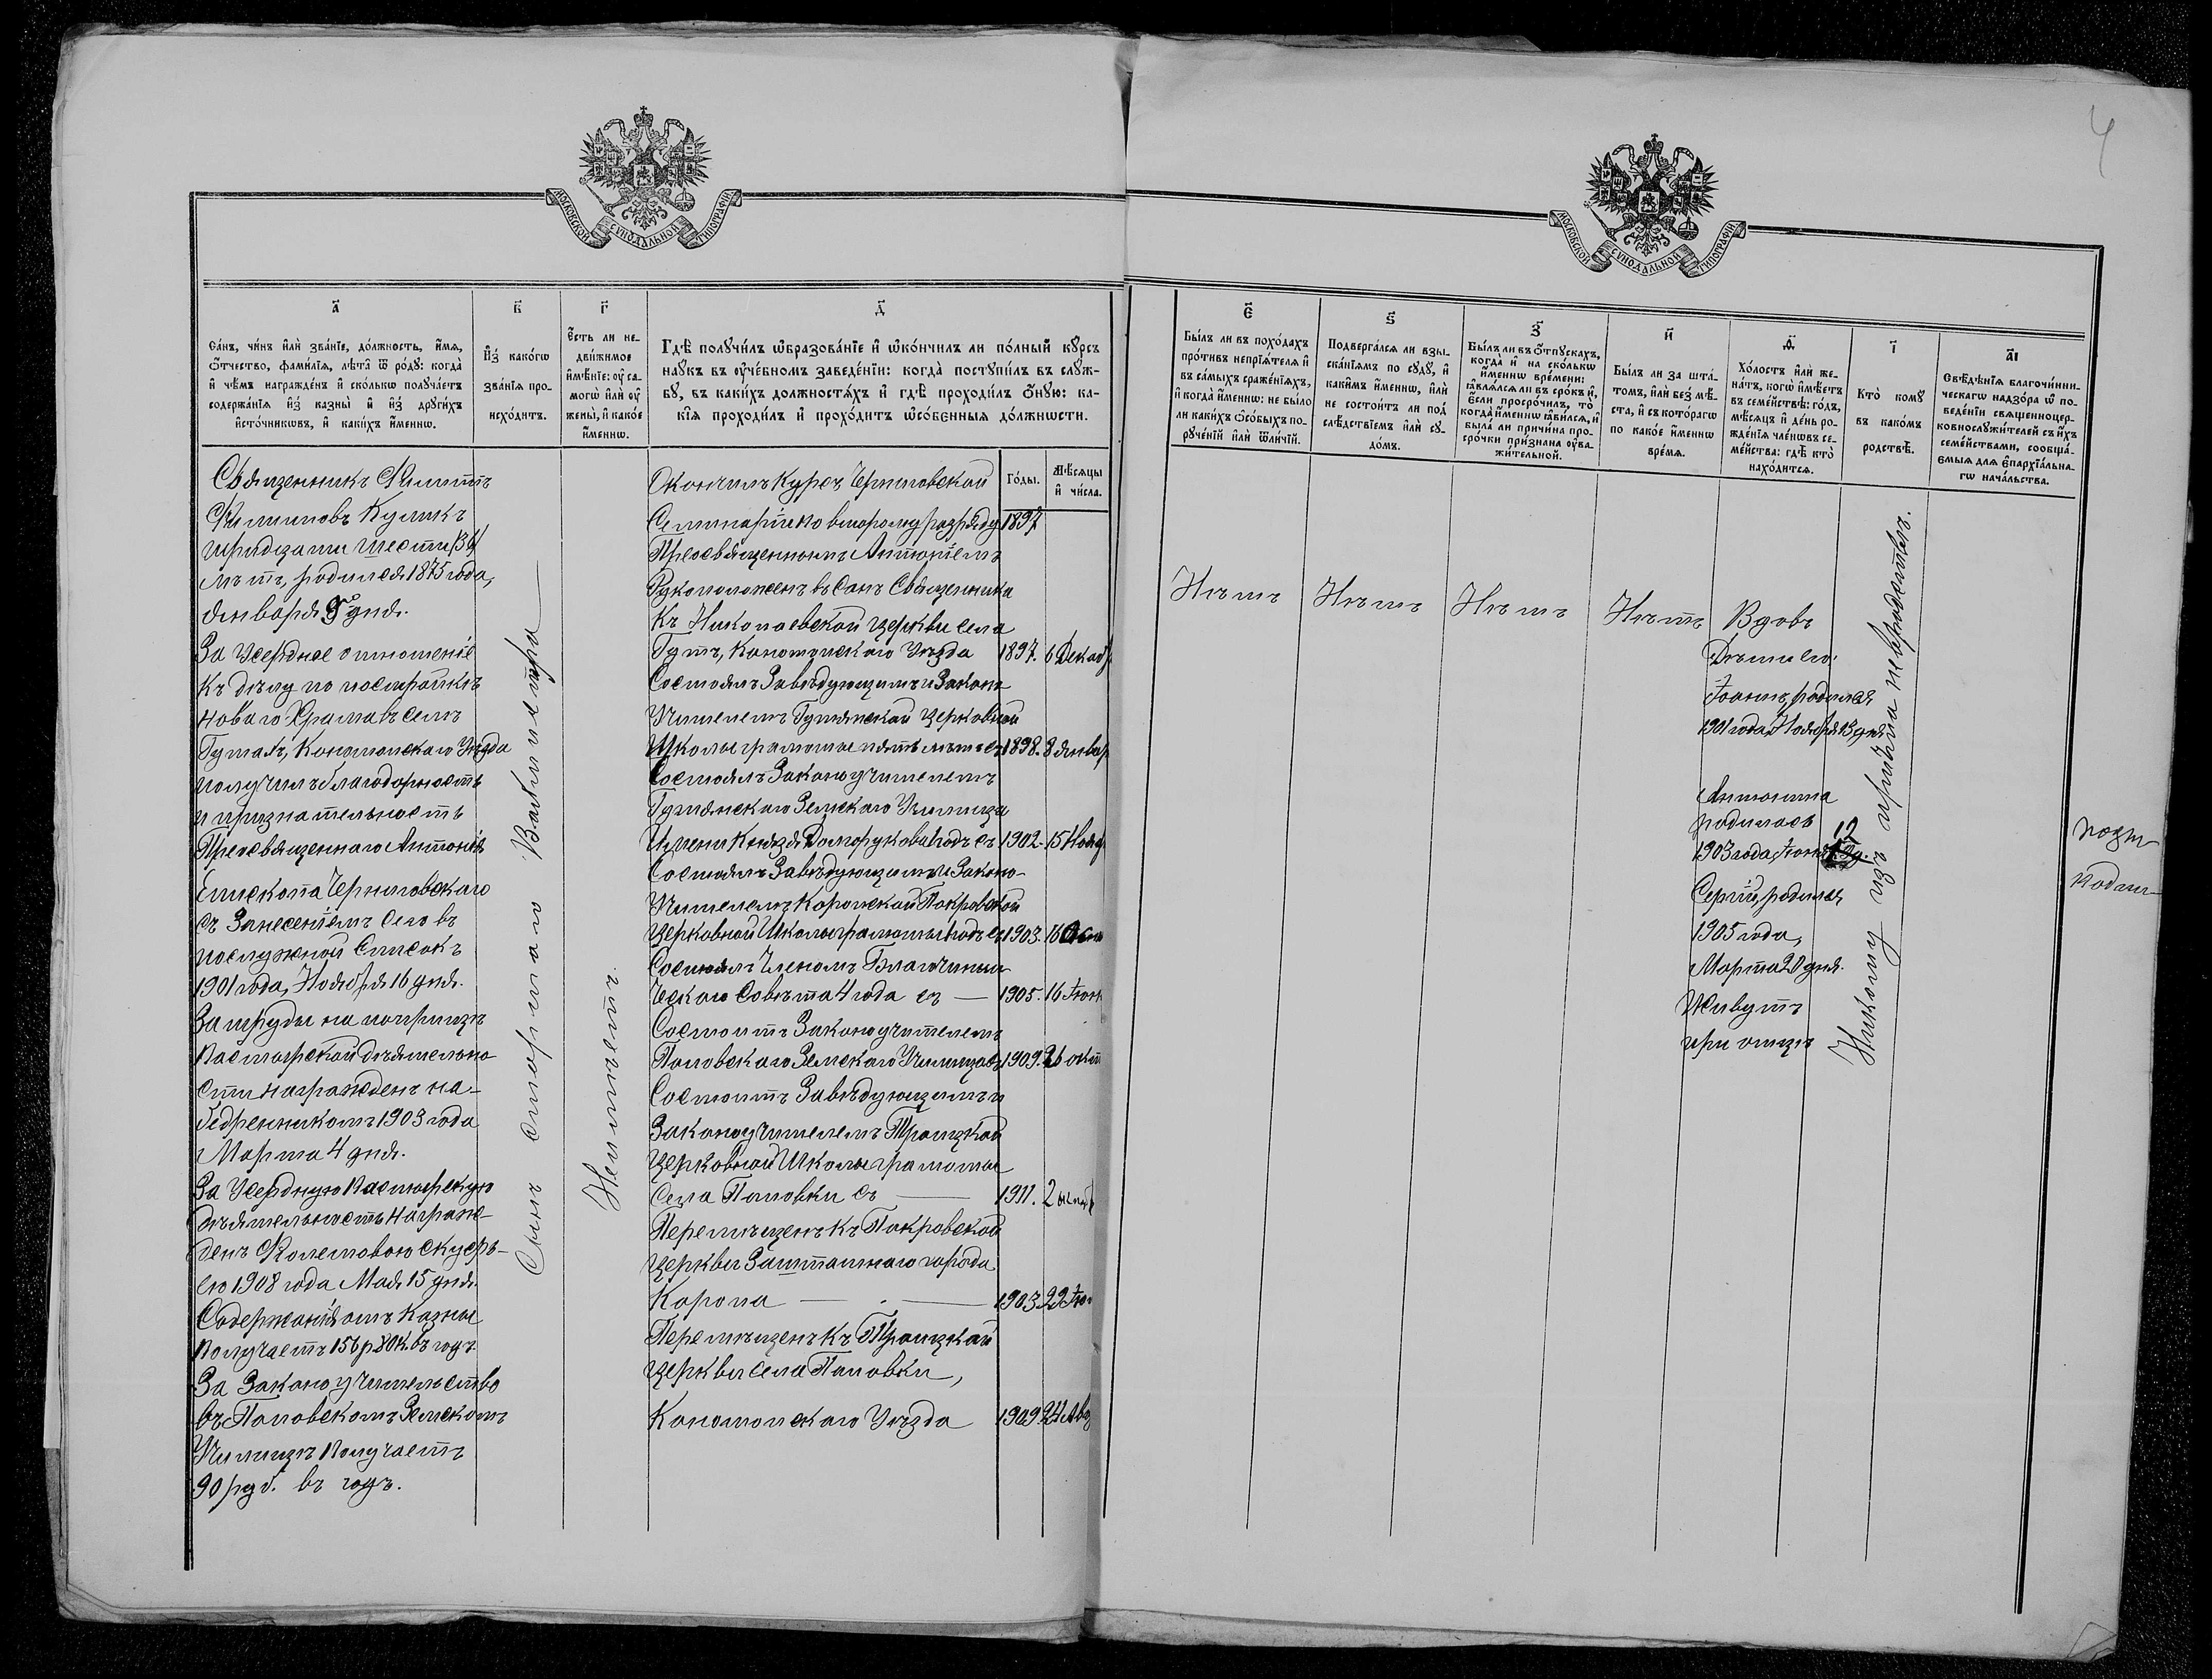 4
МОСКОВСКОЙ СѴНОДАЛЬНОЙ ТИПОГРАФІИ
МОСКОВСКОЙ СѴНОДАЛЬНОЙ ТИПОГРАФІИ
а҃
Са́нъ, чи́нъ и҆лѝ зва́нїе, до́лжность, и҆́мѧ,
ѻ҆́тчество, фами́лїѧ, лѣ́та ѿ ро́дꙋ: когда̀
и҆ чѣ́мъ награжде́нъ и҆ ско́лькѡ получа́етъ
содержа́нїѧ и҆з̾ казны̀ и҆ и҆з̾ дрꙋги́хъ
и҆сто́чникѡвъ, и҆ каки́хъ и҆́меннѡ.
в҃
И҆з̾ како́гѡ
зва́нїѧ про-
исхо́дитъ.
г҃
Є҆́сть ли не-
дви́жимое
и҆мѣ́нїе: ᲂу҆ са-
могѡ̀ и҆лѝ ᲂу҆
жены̀, и҆ како́е
и҆́меннѡ.
д҃
Гдѣ̀ получи́лъ ѡ҆бразова́нїе и҆ ѡ҆ко́нчилъ ли по́лный кꙋ́рсъ
наꙋ́къ въ ᲂу҆че́бномъ заведе́нїи: когда̀ постꙋпи́лъ въ слꙋ́ж-
бꙋ, въ каки́хъ должностѧ́хъ и҆ гдѣ̀ проходи́лъ ѻ҆́нꙋю: ка-
кі́ѧ проходи́лъ и҆ прохо́дитъ ѡ҆со́бєнныѧ до́лжнѡсти.
Го́ды.
Мѣ́сѧцы
и҆ чи́сла.
Священникъ Филиппъ
Климповъ Куликъ
тридцати шести /36/
лѣтъ, родился 1875 года,
января 9 дня.
За усердное отношеніе
къ дѣлу по постройкѣ
новаго Храма въ селѣ
Гутахъ, Конотопскаго Уѣзда
получилъ благодарность
и признательность
Преосвященнаго Антонія
Епископа Черниговскаго
съ занесеніемъ сего въ
послужной Списокъ
1901 года, Ноября 16 дня.
За труды на поприщѣ
пастырской дѣятельно
сти награжденъ на-
бедренникомъ 1903 года
Марта 4 дня.
За Усердную Пастырскую
дѣятельность награж-
денъ Фіолетовою скуфь-
ею 1908 года Мая 15 дня.
Содержанія отъ Казны
получаетъ 156 р 80 к. въ годъ.
За Законоучительство
въ Поповскомъ Земскомъ
Училищѣ получаетъ
90 руб. въ годъ.
Неимѣетъ.
Окончилъ курсъ Черниговской
Семинаріи по второму разряду 1897
Преосвященнымъ Антоніемъ
Рукоположенъ въ Санъ Священника
къ Николаевской церкви села
Гутъ, Конотопскаго Уѣзда 1897. 6 Декаб
Состоялъ Завѣдующимъ и Законо
Учителемъ Гутянской церковной
Школы грамоты пять лѣтъ съ 1898. 8 январ
Состоялъ Законоучителемъ
Гутянскаго Земскаго Училища
Имени Князя Долгорукова годъ съ 1902. 15 Нояб
Состоялъ Завѣдующимъ и Законо-
Учителемъ Коропской Покровской
Церковной Школы грамоты съ 1903. 16
Состоялъ Членомъ Благочинни
ческаго Совѣта 4 года съ — 1905. 16 Іюн
Состоитъ Законоучителемъ
Поповскаго Земскаго Училища съ 1909. 26 окт
Состоитъ Завѣдующимъ и
Законоучителемъ Троицкой
Церковной Школы грамоты
Села Поповки съ — 1911. 2 октяб
Перемѣщенъ къ Покровской
Церкви Заштатнаго города
Коропа — 1903. 22 Іюн
Перемѣщенъ къ Троицкой
церкви села Поповки,
Конотопскаго Уѣзда 1909. 24 Авг
є҃
Бы́лъ ли въ похо́дахъ
про́тивъ непрїѧ́телѧ и҆
въ са́мыхъ сраже́нїѧхъ,
и҆ когда̀ и҆́меннѡ: не бы́ло
ли каки́хъ ѻ҆со́быхъ по-
рꙋче́нїй и҆лѝ ѿли́чїй.
ѕ҃
Подверга́лсѧ ли взы-
ска́нїѧмъ по сꙋдꙋ̀, и҆
каки́мъ и҆́меннѡ, и҆лѝ
не состои́тъ ли под̾
слѣ́дствїемъ и҆лѝ сꙋ-
до́мъ.
з҃
Бы́лъ ли въ ѻ҆́тпꙋскахъ,
когда̀ и҆ на ско́лькѡ
и҆́меннѡ вре́мени:
ꙗ҆влѧ́лсѧ ли въ сро́къ и҆,
є҆́сли просро́чилъ, то̀
когда̀ и҆́меннѡ ꙗ҆ви́лсѧ, и҆
была̀ ли причи́на про-
сро́чки при́знана ᲂу҆ва-
жи́тельной.
и҃
Бы́лъ ли за шта́-
томъ, и҆лѝ без̾ мѣ́-
ста, и҆ съ кото́рагѡ
по како́е и҆́меннѡ
вре́мѧ.
ѳ҃
Хо́лостъ и҆лѝ же-
на́тъ, когѡ̀ и҆мѣ́етъ
въ семе́йствѣ: го́дъ,
мѣ́сѧцъ и҆ де́нь ро-
жде́нїѧ чле́нѡвъ се-
ме́йства: гдѣ̀ кто̀
нахо́дитсѧ.
і҃
Кто̀ комꙋ̀
въ како́мъ
родствѣ̀.
а҃і
Свѣ́дѣнїѧ благочи́нни-
ческагѡ надзо́ра ѡ҆ по-
веде́нїи свѧщенноцер-
ковнослꙋжи́телей съ и҆́хъ
семе́йствами, сообща́-
ємыѧ длѧ є҆парха́льна-
гѡ нача́льства.
Нѣтъ
Нѣтъ
Нѣтъ
Нѣтъ
Вдовъ
Дѣти его:
Іоаннъ, родился
1901 года, Ноября 3 дня
Антонина
родилась
1903 года, Іюня 12
Сергій, родился
1905 года,
Марта 20 дня.
Живутъ
при отцѣ
Никому изъ причта невродствѣ.